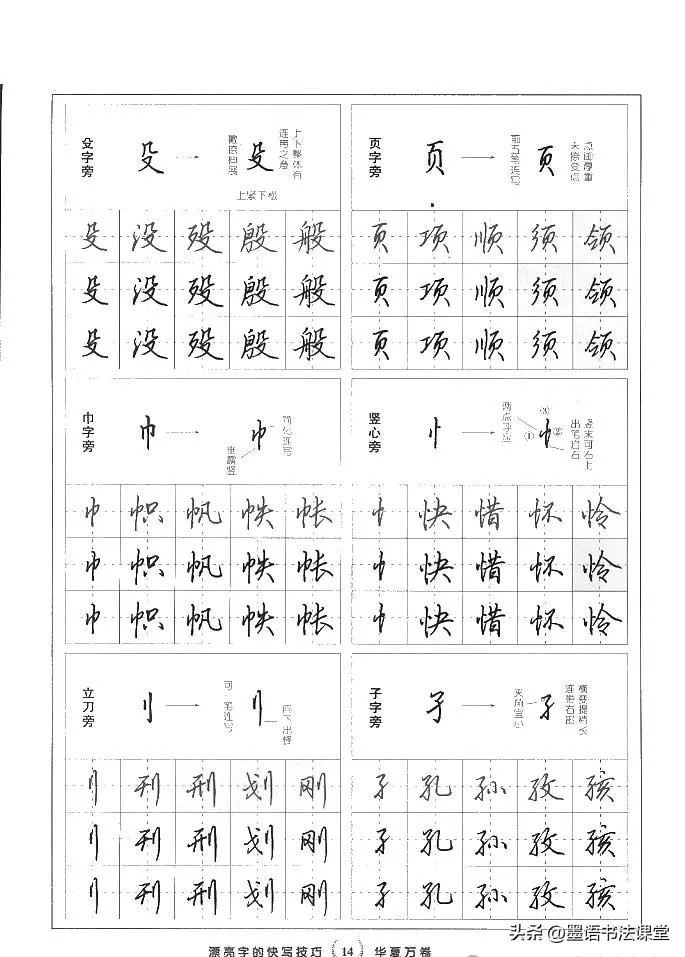 殳字旁
殳 → 殳
上下整体有
连带之意
上紧下松
殳 没 殁 殷 般
殳 没 殁 殷 般
殳 没 殁 殷 般
页字旁
页 → 页
前五笔连写
点画厚重
末捺变点
页 项 顺 须 领
页 项 顺 须 领
页 项 顺 须 领
巾字旁
巾 → 巾
简化连写
垂露竖
巾 帜 帆 帙 帐
巾 帜 帆 帙 帐
巾 帜 帆 帙 帐
竖心旁
忄 → 忄
两点呼应
① ② ③
竖末可右上
出笔启右
忄 快 惜 怀 怜
忄 快 惜 怀 怜
忄 快 惜 怀 怜
立刀旁
刂 → 刂
可一笔连写
向下出锋
刂 刊 刑 划 刚
刂 刊 刑 划 刚
刂 刊 刑 划 刚
子字旁
子 → 子
夹角宜小
横变提稍长
连带右部
子 孔 孙 孜 孩
子 孔 孙 孜 孩
子 孔 孙 孜 孩
漂亮字的快写技巧 14 华夏万卷
头条@墨语书法课堂